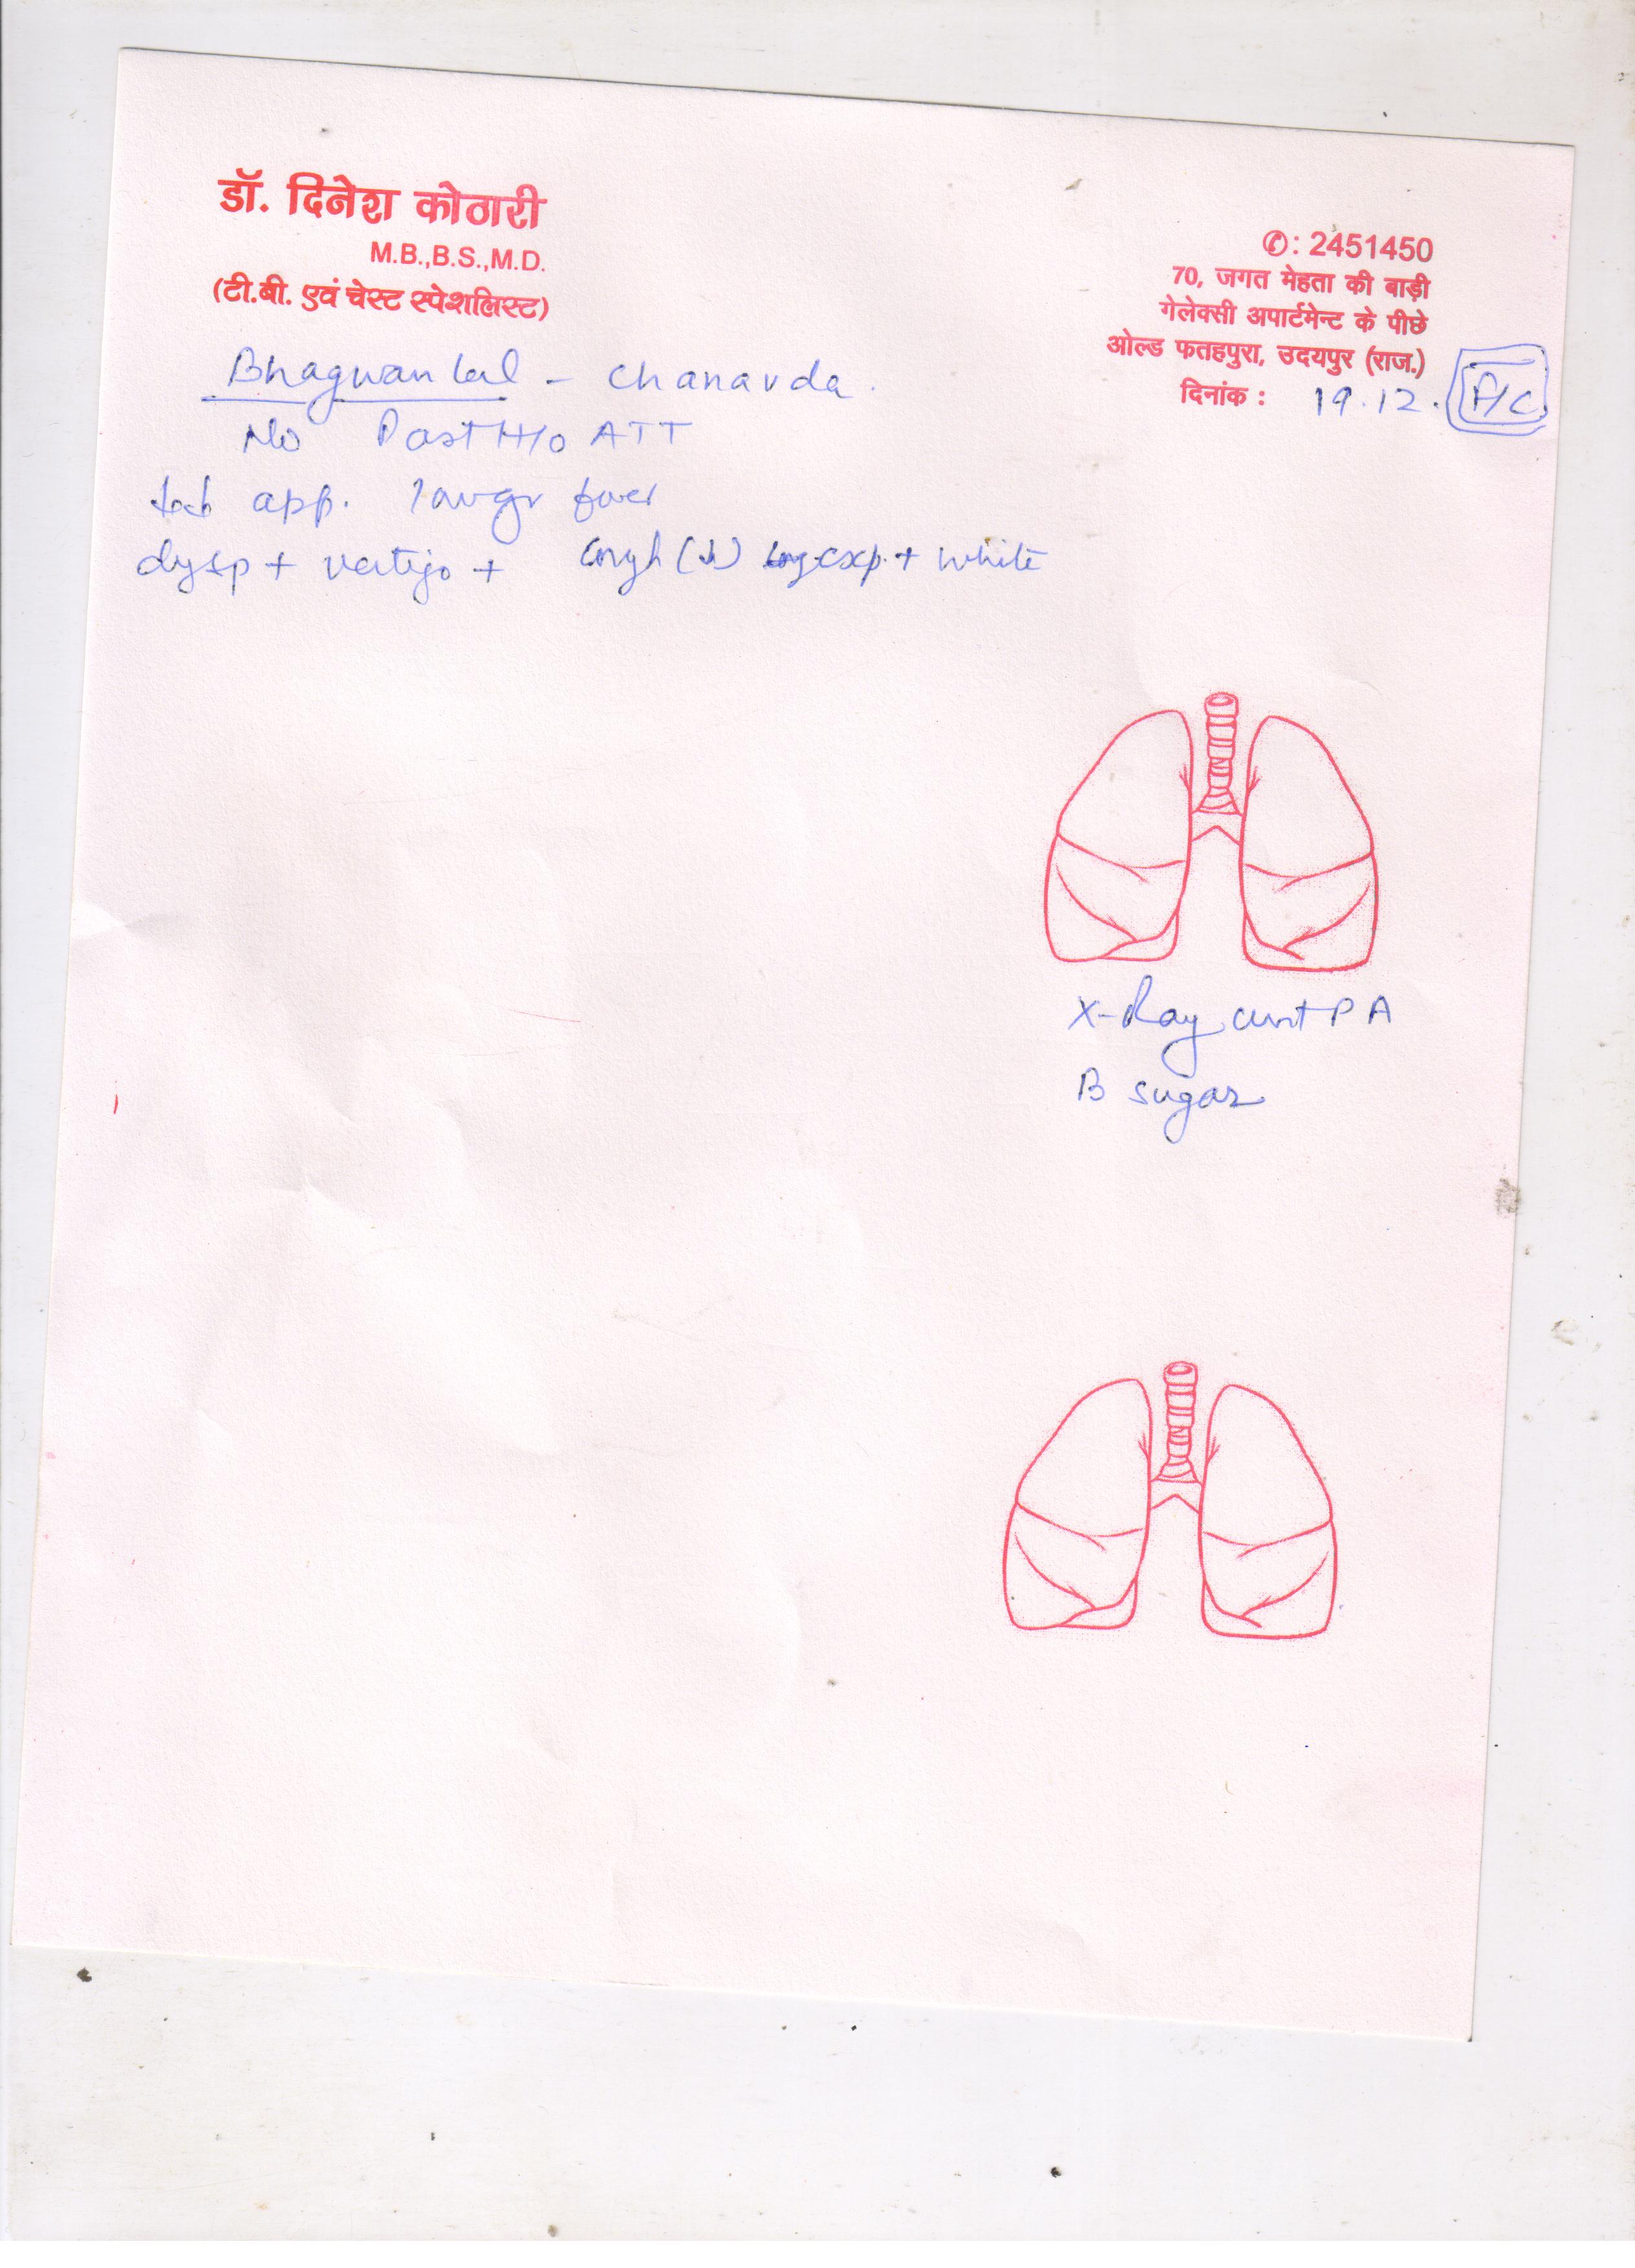 डॉ. दिनेश कोठारी
M.B.,B.S.,M.D.
(टी.बी. एवं चेस्ट स्पेशलिस्ट)
✆: 2451450
70, जगत मेहता की बाड़ी
गेलेक्सी अपार्टमेन्ट के पीछे
ओल्ड फतहपुरा, उदयपुर (राज.)
दिनांक : 19.12.
Bhagwan lal - Chanavda.
No Past H/o ATT
app. fever
dysp + vertigo + Cough exp. + white
X-Ray PA
B sugar